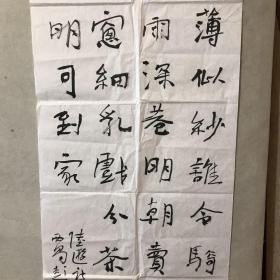 薄似紗誰令騎
雨深巷明朝賣
窻細乳戲分茶
明可到家
陸遊詩
西蜀